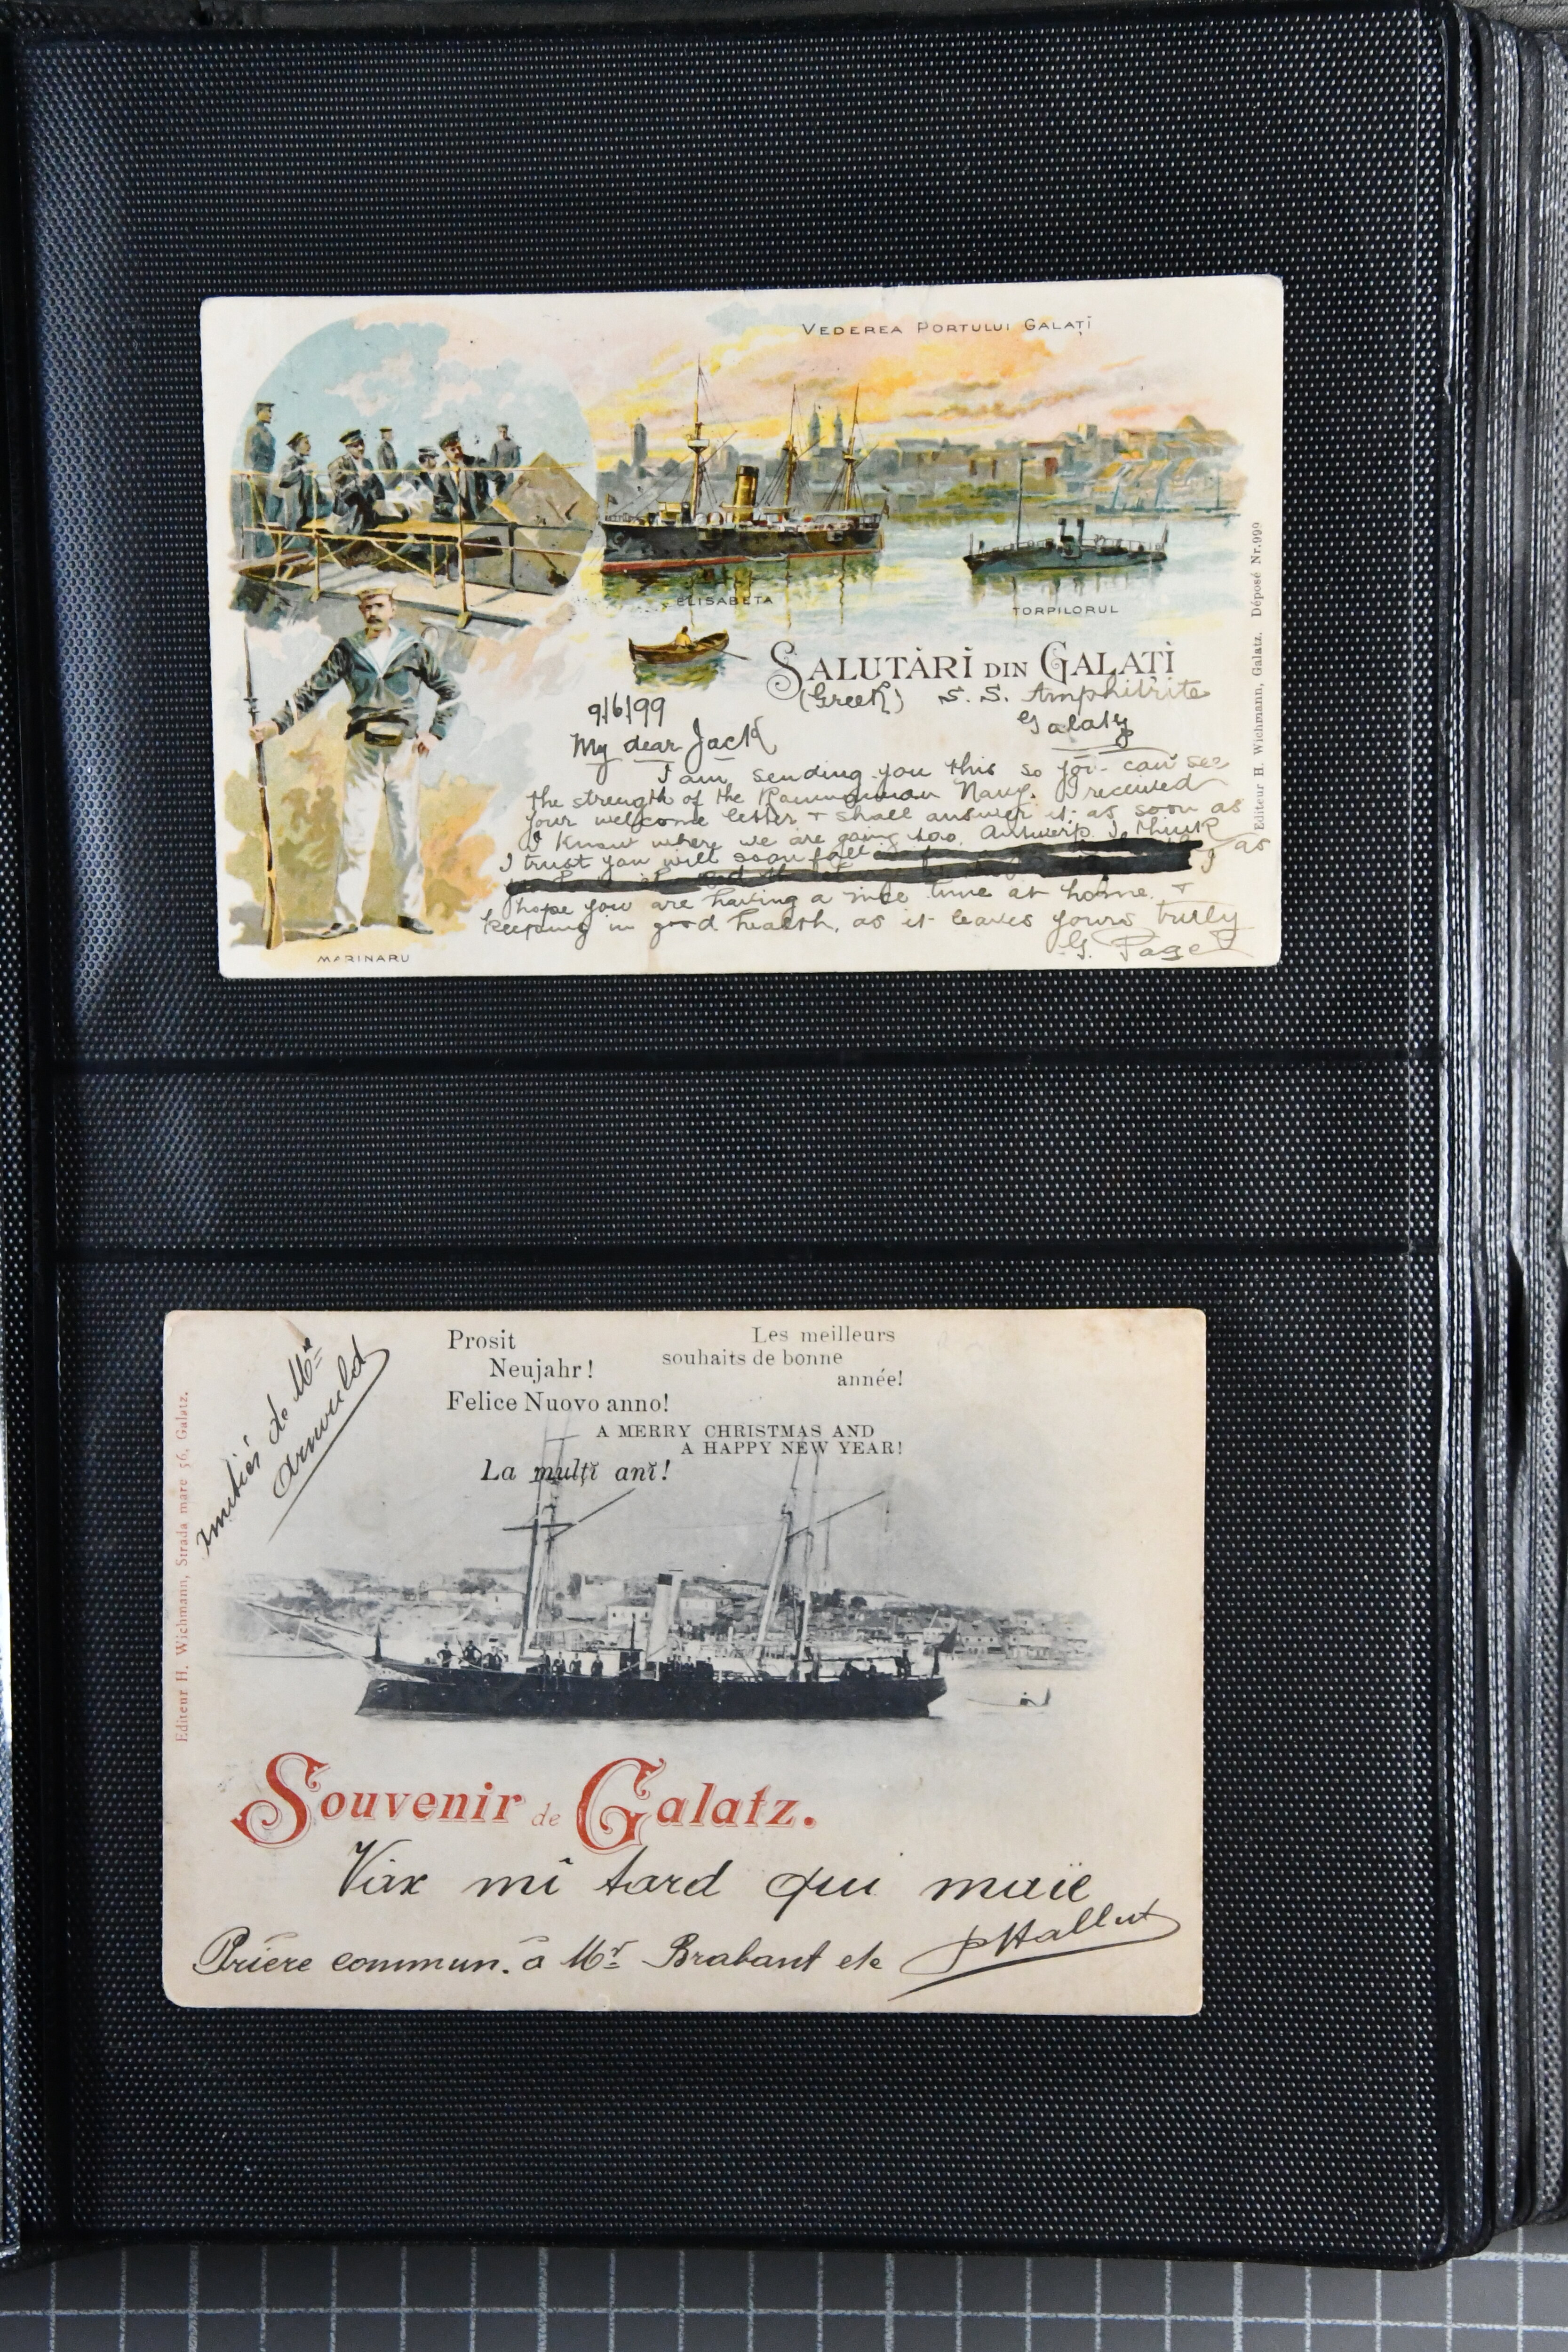 VEDEREA PORTULUI GALAȚĬ
ELISABETA
TORPILORUL
SALUTĂRĬ DIN GALAȚĬ
MARINARU
Editeur H. Wichmann, Galatz. Déposé Nr.999
(Greek) S. S. Amphitrite
9/6/99 Galatz
My dear Jack
I am sending you this so you can see
the strength of the Navy. I received
your welcome letter + shall answer it as soon as
I know where we are going too. Antwerp I think
I trust you will soon as
I
hope you are having a nice time at home. +
keeping in good health, as it leaves yours truly
G. Page
Editeur H. Wichmann, Strada mare 56, Galatz.
amitiés de Mr
Arnould
Prosit
Neujahr!
Les meilleurs
souhaits de bonne
année!
Felice Nuovo anno!
A MERRY CHRISTMAS AND
A HAPPY NEW YEAR!
La mulțĭ anĭ!
Souvenir de Galatz.
mî tard qui
Prière commun. à Mr Brabant etc